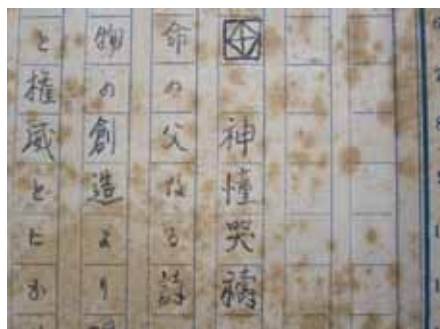 神憧哭禱
命の父なる詩
物の創造より
と権威とにお